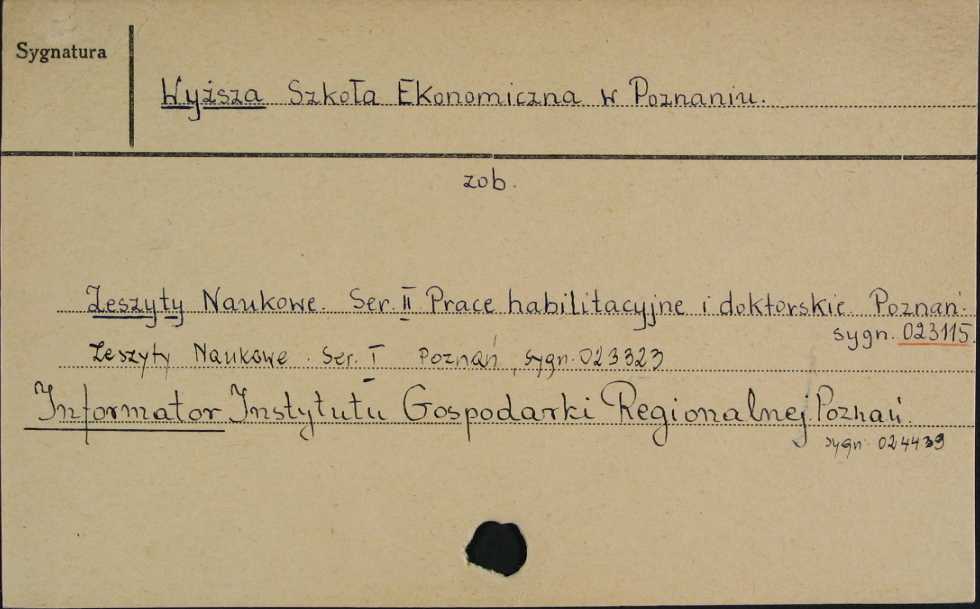 Sygnatura
Wyższa Szkoła Ekonomiczna w Poznaniu.
zob.
Zeszyty Naukowe. Ser. II Prace habilitacyjne i doktorskie. Poznań.
sygn. 023115.
Zeszyty Naukowe. Ser. I Poznań, sygn. 023323
Informator Instytutu Gospodarki Regionalnej. Poznań.
sygn. 024439